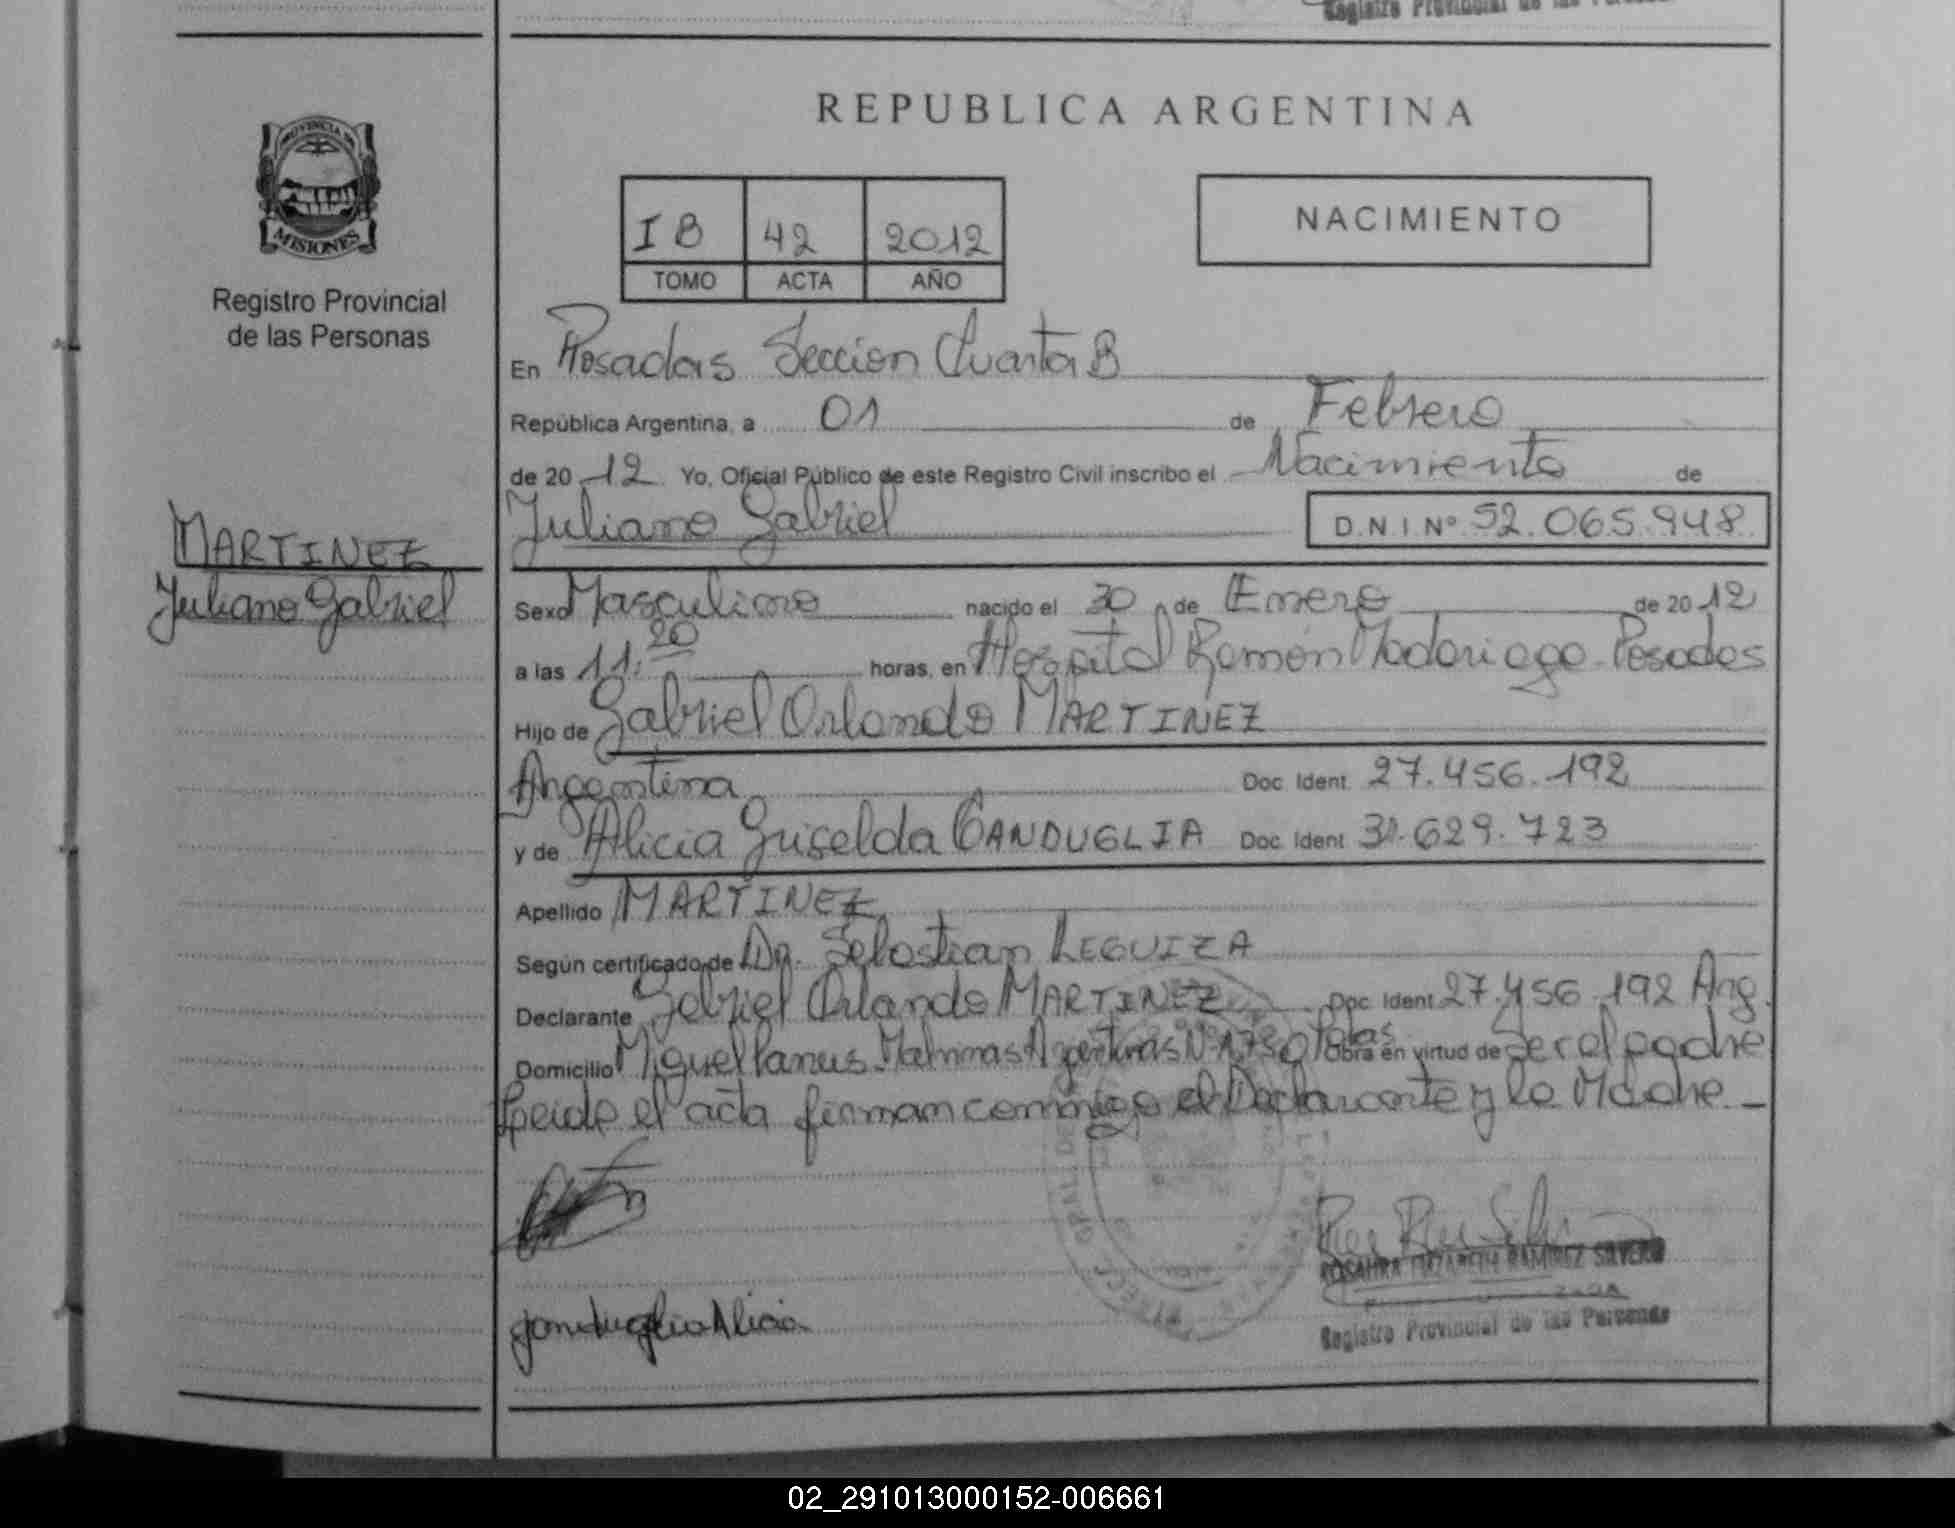 Registro Provincial de las Personas
REPUBLICA ARGENTINA
PROVINCIA DE
MISIONES
Registro Provincial
de las Personas
I B 42 2012
TOMO ACTA AÑO
NACIMIENTO
En Posadas Seccion Cuarta B
República Argentina, a 01 de Febrero
de 20 12 Yo, Oficial Público de este Registro Civil inscribo el Nacimiento de
Juliano Gabriel D.N.I Nº 52.065.948
MARTINEZ
Juliano Gabriel
Sexo Masculino nacido el 30 de Enero de 20 12
a las 11:20 horas, en Hospital Ramón Madariaga - Posadas
Hijo de Gabriel Orlando MARTINEZ
Argentina Doc. Ident. 27.456.192
y de Alicia Griselda GANDUGLIA Doc. Ident. 31.629.723
Apellido MARTINEZ
Según certificado de Dr. Sebastian LEGUIZA
Declarante Gabriel Orlando MARTINEZ Doc. Ident. 27.456.192 Arg.
Domicilio Miguel Lanus - Malvinas Argentinas Nº 1730 Pdas Obra en virtud de Ser el padre
Leida el acta firman conmigo el Declarante y la Madre. —
Ganduglia Alicia
ROSAURA ELIZABETH RAMIREZ SILVERO
Registro Provincial de las Personas
02_291013000152-006661